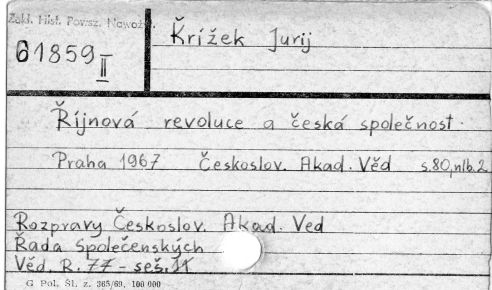 Zakł. Hist. Powsz. Nowoż.
61859 II
Křížek Jurij
Říjnová revoluce a česká společnost.
Praha 1967 Českoslov. Akad. Věd s.80,nlb.2
Rozpravy Českoslov. Akad. Ved
Řada Společenských
Věd. R. 77 - seš. 11
G Pol. Śl. z. 365/69, 100 000